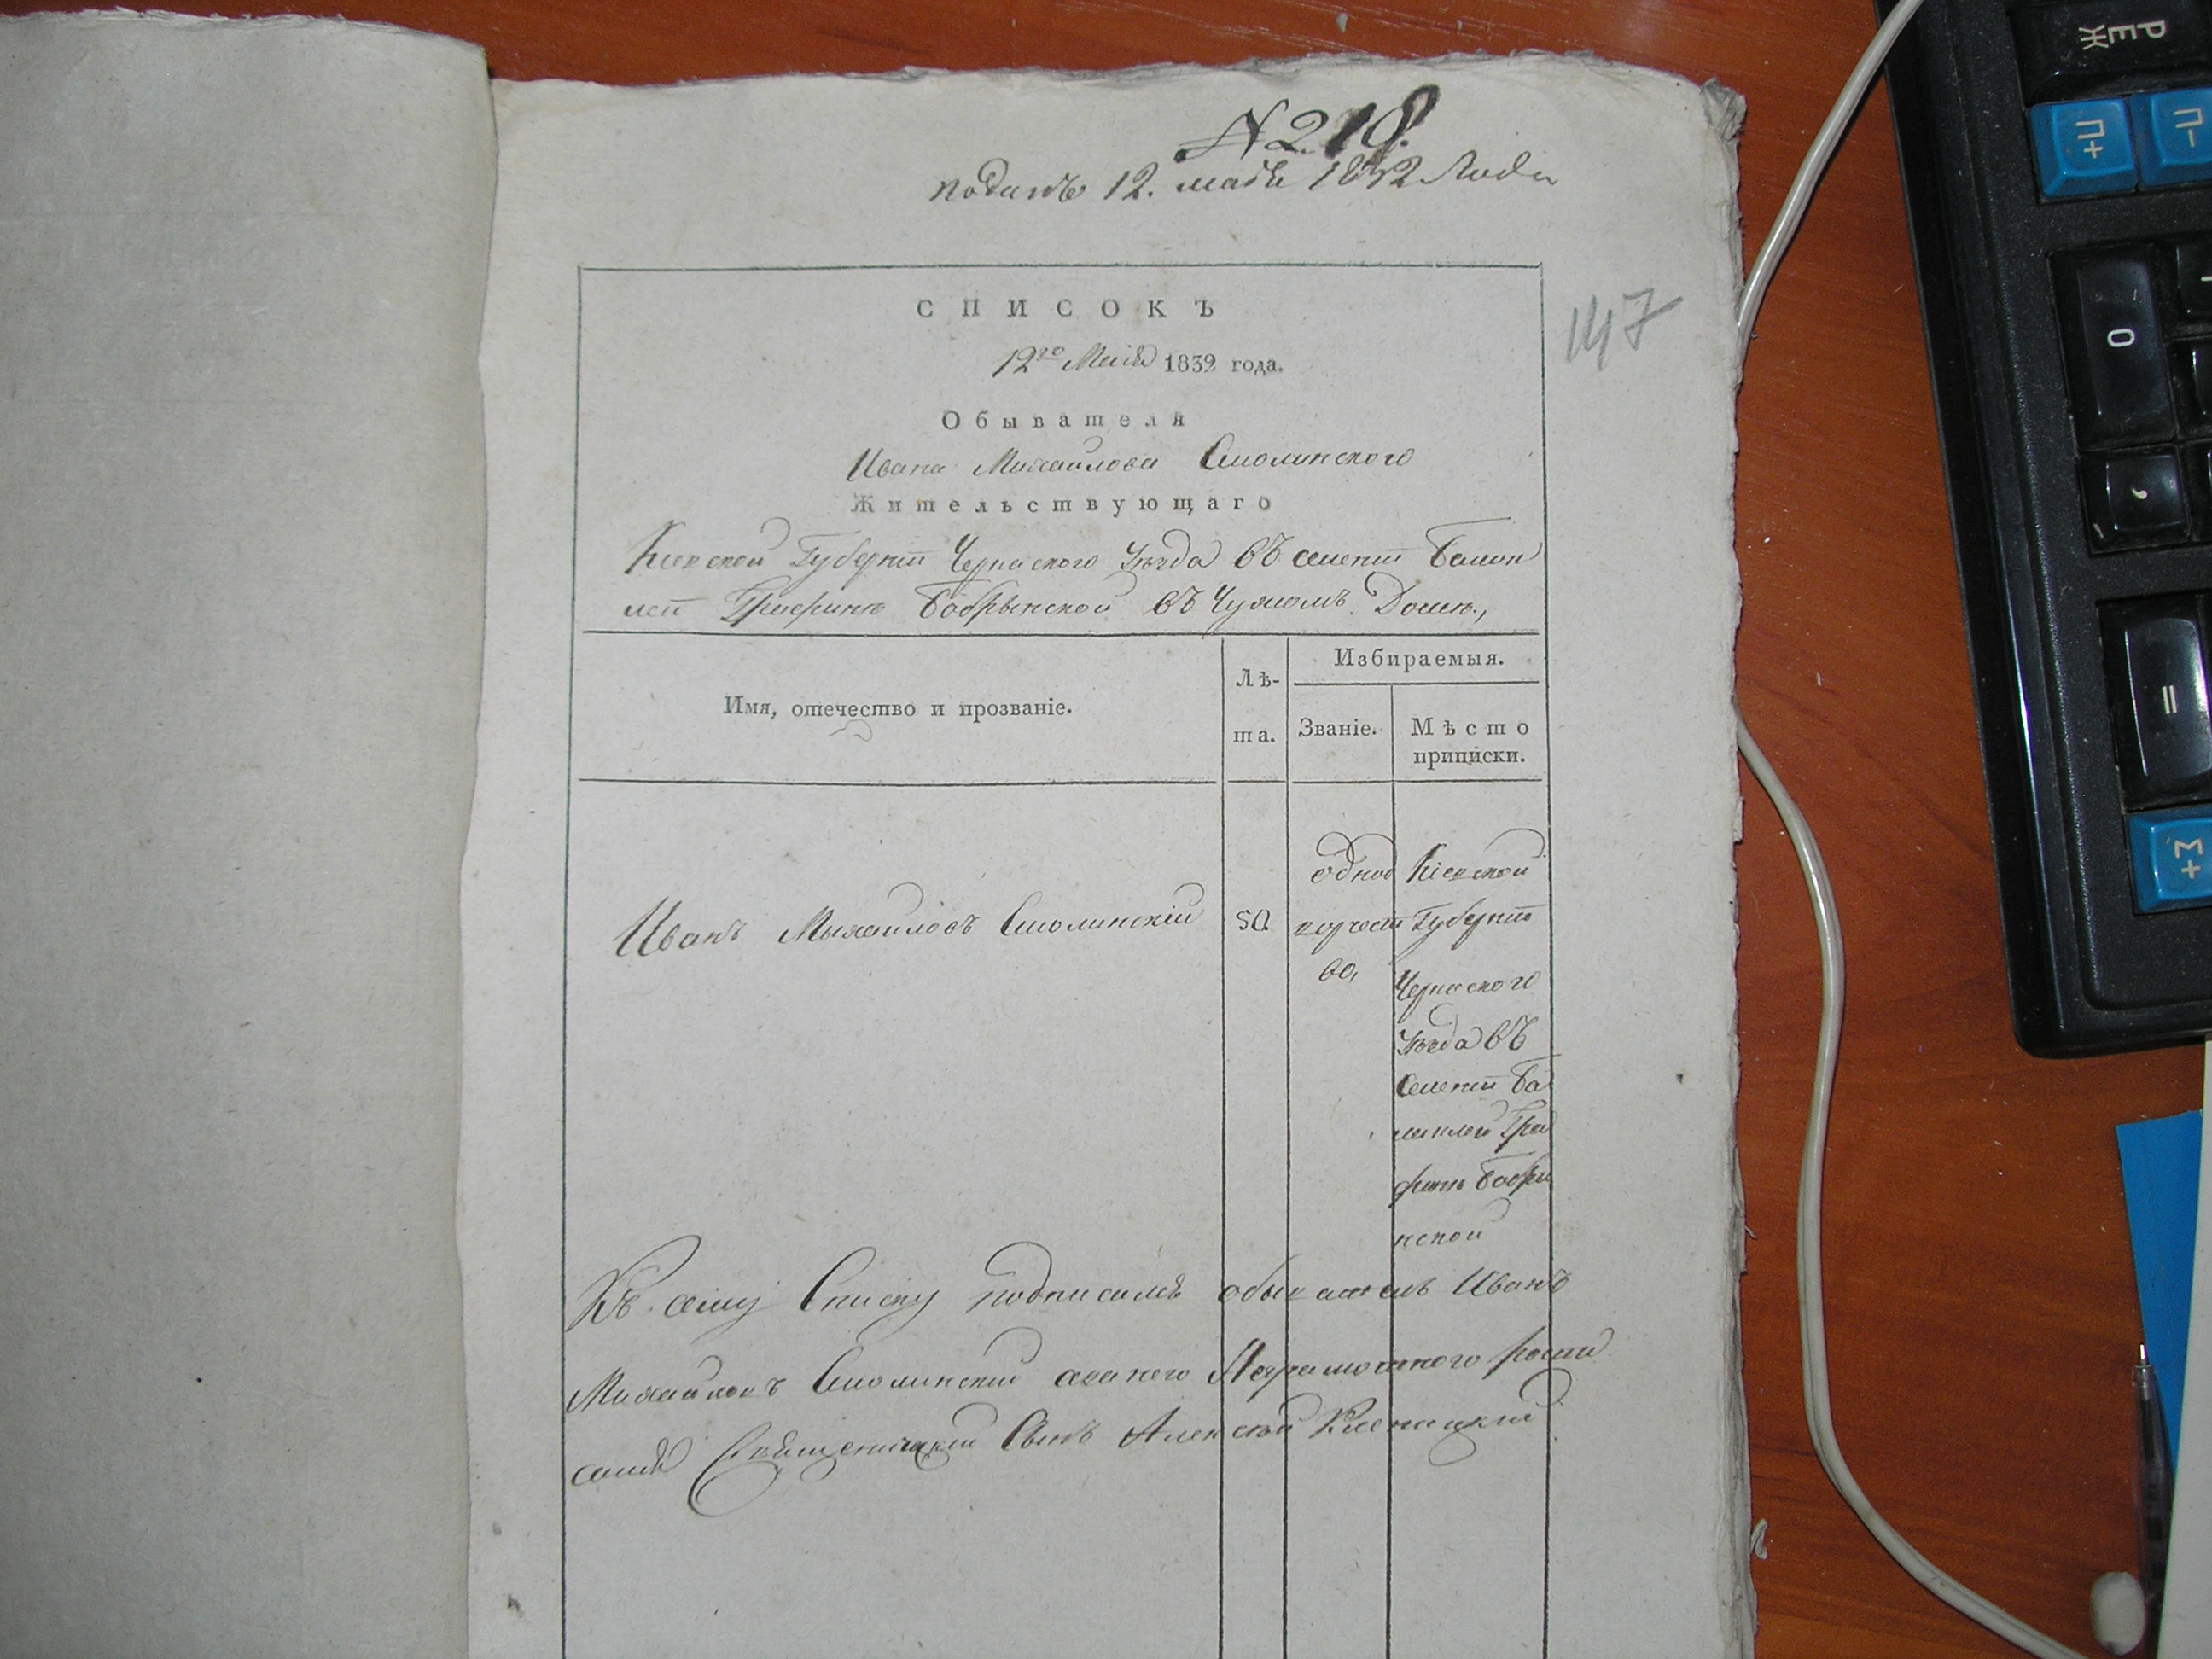 N 218.
поданъ 12. маія 1832 Года
147
СПИСОКЪ
12го Маія 1832 года.
Обывателя
Ивана Михайлова Смолинского
Жительствующаго
Кіевской Губерніи Черкаского Уезда въ селеніи Балак
лей Графини Бобрынской въ Чужомъ Доме,
Имя, отечество и прозваніе.
Лѣ-
та.
Избираемыя.
Званіе.
Мѣсто
приписки.
Иванъ Михайловъ Смолинскій
50.
однод
ворчест
во,
Кіевской
Губерніи
Черкаского
Уезда въ
Селеніи Ба
лаклей Гра
фини Бобри
нской
Къ сему Списку подписался обыватель Иванъ
Михайловъ Смолинскій азанего Неграмотного росписа
Священицкій Сынъ Алексей
РЕЖ
П+
П-
0
,
=
Σ+